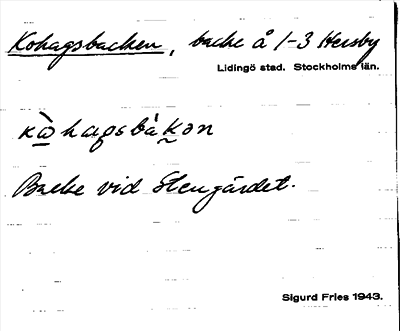 Kohagsbacken, backe å 1-3 Hersby
Lidingö stad. Stockholms län.
Backe vid Stengärdet.
Sigurd Fries 1943.